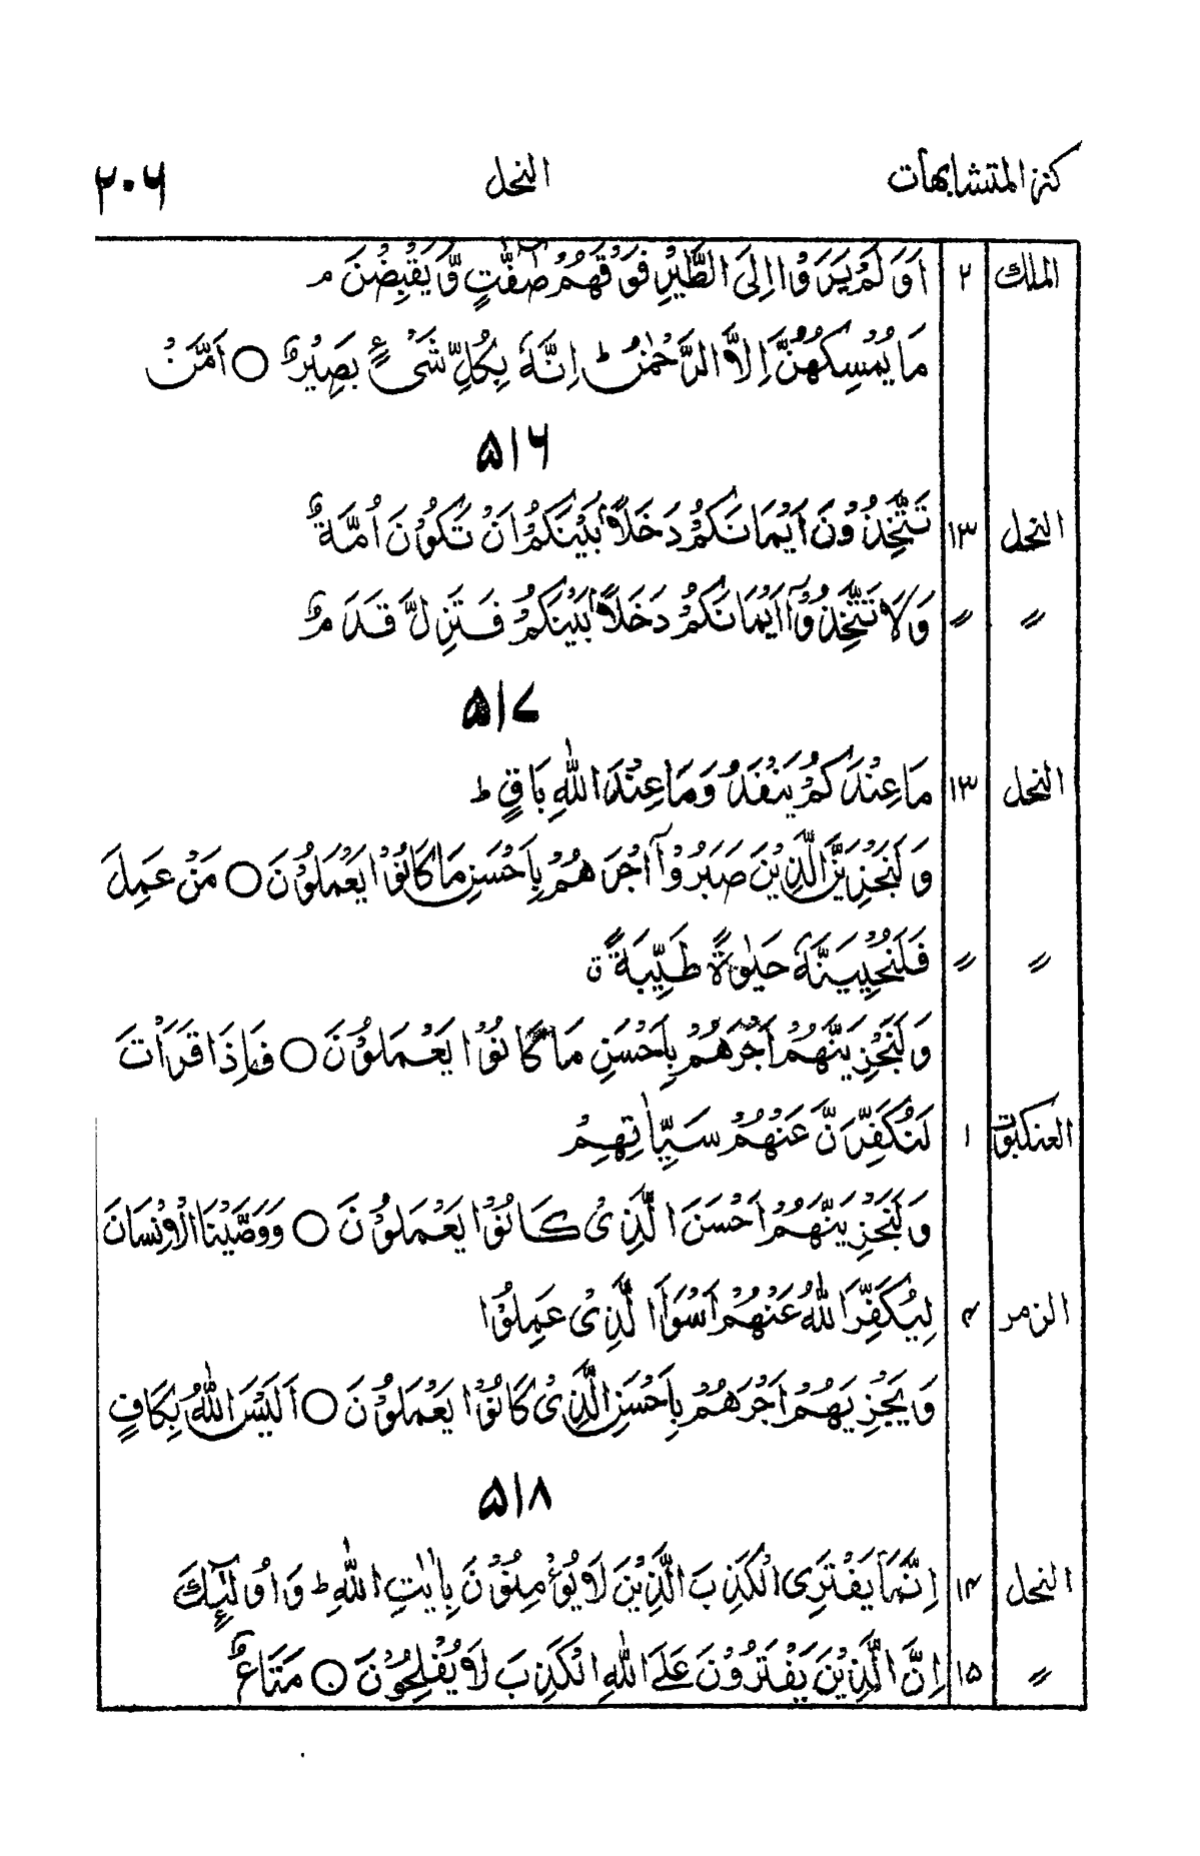 كنز المتشابهات النحل ۲۰۶
الملك ۲ اَوَ لَمْ يَرَوْا اِلَى الطَّيْرِ فَوْقَهُمْ صٰٓفّٰتٍ وَّ يَقْبِضْنَ م
مَا يُمْسِكُهُنَّ اِلَّا الرَّحْمٰنُ ط اِنَّهٗ بِكُلِّ شَیْءٍۭ بَصِيْرٌ ○ اَمَّنْ
۵۱۶
النحل ۱۳ تَتَّخِذُوْنَ اَيْمَانَكُمْ دَخَلًاۢ بَيْنَكُمْ اَنْ تَكُوْنَ اُمَّةٌ
〃 〃 وَلَا تَتَّخِذُوْٓا اَيْمَانَكُمْ دَخَلًاۢ بَيْنَكُمْ فَتَزِلَّ قَدَمٌ
۵۱۷
النحل ۱۳ مَا عِنْدَكُمْ يَنْفَدُ وَمَا عِنْدَ اللّٰهِ بَاقٍ ط
وَلَنَجْزِيَنَّ الَّذِيْنَ صَبَرُوْٓا اَجْرَهُمْ بِاَحْسَنِ مَا كَانُوْا يَعْمَلُوْنَ ○ مَنْ عَمِلَ
〃 〃 فَلَنُحْيِيَنَّهٗ حَيٰوةً طَيِّبَةً ۚ
وَلَنَجْزِيَنَّهُمْ اَجْرَهُمْ بِاَحْسَنِ مَا كَانُوْا يَعْمَلُوْنَ ○ فَاِذَا قَرَاْتَ
العنكبوت ۱ لَنُكَفِّرَنَّ عَنْهُمْ سَيِّاٰتِهِمْ
وَلَنَجْزِيَنَّهُمْ اَحْسَنَ الَّذِیْ كَانُوْا يَعْمَلُوْنَ ○ وَوَصَّيْنَا الْاِنْسَانَ
الزمر ۴ لِيُكَفِّرَ اللّٰهُ عَنْهُمْ اَسْوَاَ الَّذِیْ عَمِلُوْا
وَيَجْزِيَهُمْ اَجْرَهُمْ بِاَحْسَنِ الَّذِیْ كَانُوْا يَعْمَلُوْنَ ○ اَلَيْسَ اللّٰهُ بِكَافٍ
۵۱۸
النحل ۱۴ اِنَّمَا يَفْتَرِی الْكَذِبَ الَّذِيْنَ لَا يُؤْمِنُوْنَ بِاٰيٰتِ اللّٰهِ ط وَاُولٰٓئِكَ
〃 ۱۵ اِنَّ الَّذِيْنَ يَفْتَرُوْنَ عَلَى اللّٰهِ الْكَذِبَ لَا يُفْلِحُوْنَ ○ مَتَاعٌ